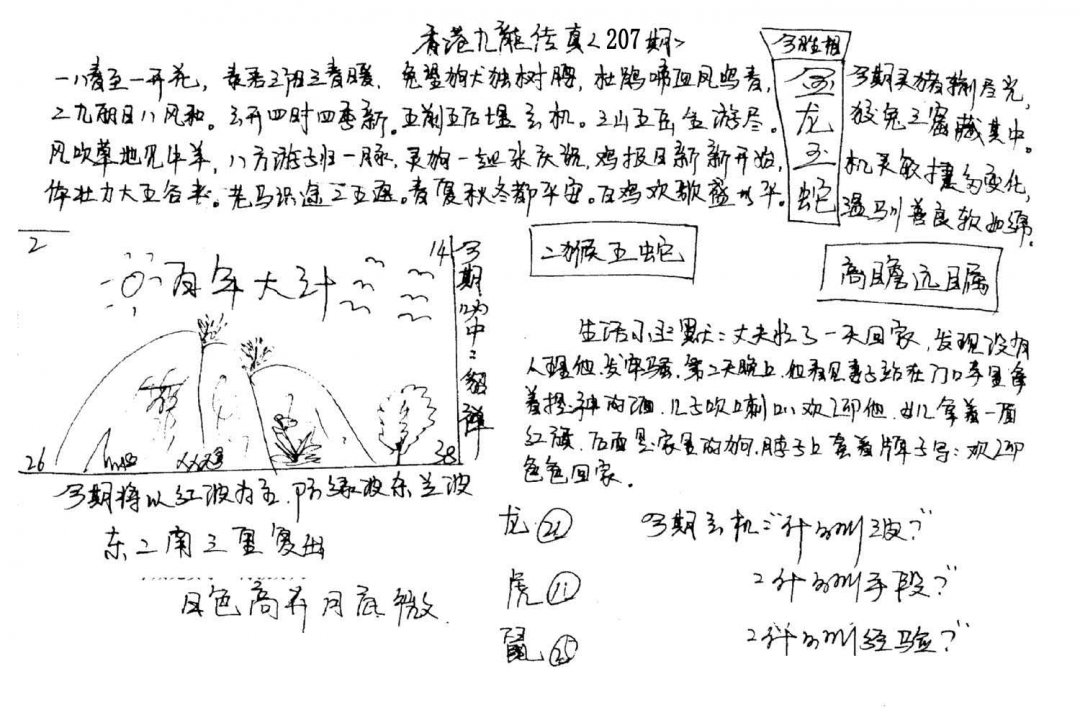 香港九龍传真<207期>
一八春至一开花，春君三阳三春暖，兔望狗犬独树腰，杜鹃啼血凤鸣春，
二九明日八风和。三开四时四季新。五前五后埋玄机。三山五岳全游尽。
风吹草地见牛羊，八方游子归一脉，灵狗一想来庆祝，鸡报日新新开始，
体壮力大五谷丰。老马识途三五遇。春夏秋冬都平安。百鸡欢歌盛水平。
今胜相
金龙玉蛇
今期灵猪捌尽光，
狡兔三窟藏其中。
机灵敏捷多变化，
温驯善良软如绵。
二猴五蛇
高瞻远瞩
2
14
百年大计
26
38
今期将以红波为主，防绿波东兰波
东二南三里复出
日色高升月底微
生活小幽默：丈夫忙了一天回家，发现没有
人理他，发牢骚，第二天晚上，他看见妻子站在门口手里拿
着提神的酒，儿子吹喇叭欢迎他，女儿拿着一面
红旗，后面是家里的狗，脖子上套着牌子写：欢迎
爸爸回家。
龙㉒
虎⑪
鼠㉕
今期玄机：“什么叫波？”
：什么叫手段？”
：什么叫经验？”